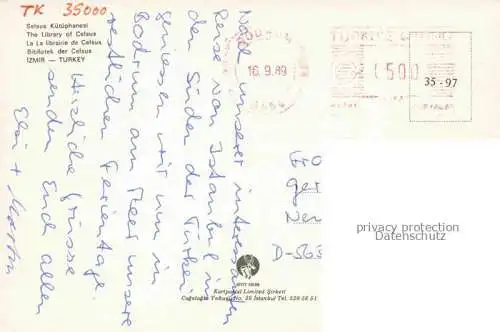 TK 35000
Selsus Kütüphanesi
The Library of Celsus
La La librairie de Celsus
Bibliotek der Celsus
İZMİR — TURKEY
16.9.89
500
35 - 97
Nach unserer interessanten
Reise von Istanbul in
den Süden der Türkei
genießen wir nun in
Bodrum am Meer unsere
restlichen Ferientage.
Herzliche Grüsse
senden Euch allen
Elsi + Martin
D-565
privacy protection
Datenschutz
Kartpostal Limited Şirketi
Cağaloğlu Yokuşu No. 25 İstanbul Tel. 528 56 51